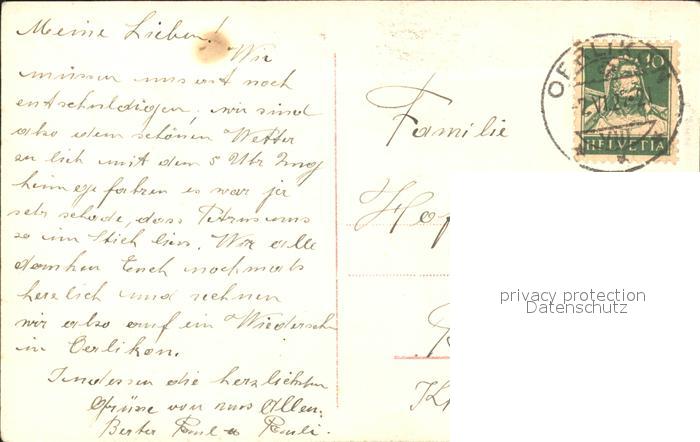 Meine Lieben!
Wir
müssen uns erst noch
entschuldigen, wir sind
also dem schönen Wetter
zu lieb mit dem 5 Uhr Zug
heimgefahren es war ja
sehr schade, dass Petrus uns
so im Stich liess. Wir alle
danken Euch nochmals
herzlich und rechnen
wir also auf ein Wiedersehn
in Oerlikon.
Indessen die herzlichsten
Grüsse von uns Allen.
Paul u Pauli.
Familie
OERLIKON
VIII
10
HELVETIA
privacy protection
Datenschutz